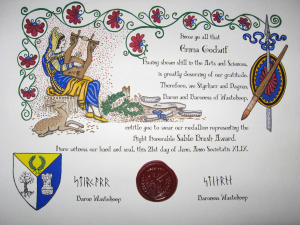 Know ye all that
Emma Godwif
Having shown skill in the Arts and Sciences,
is greatly deserving of our gratitude.
Therefore, we Styrkarr and Dagrun,
Baron and Baroness of Wastekeep,
entitle you to wear our medallion representing the
Right Honorable Sable Brush Award.
Done witness our hand and seal, this 21st day of June, Anno Societatis XLIX.
Baron Wastekeep
Baroness Wastekeep